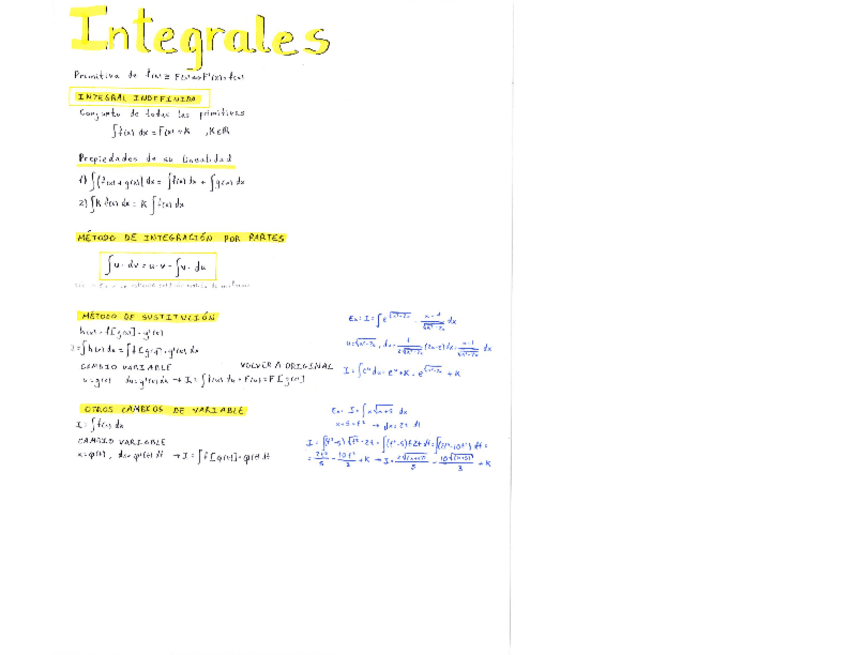 Integrales
Primitiva de f(x) ≡ F(x) ⇔ F'(x) = f(x)
INTEGRAL INDEFINIDA
Conjunto de todas las primitivas
∫f(x) dx = F(x) + K , K∈ℝ
Propiedades de su linealidad
1) ∫[f(x) + g(x)] dx = ∫f(x) dx + ∫g(x) dx
2) ∫K f(x) dx = K ∫f(x) dx
MÉTODO DE INTEGRACIÓN POR PARTES
∫u · dv = u · v - ∫v · du
MÉTODO DE SUSTITUCIÓN
h(x) = f[g(x)] · g'(x)
I = ∫h(x) dx = ∫f[g(x)] · g'(x) dx
CAMBIO VARIABLE VOLVER A ORIGINAL
u = g(x) du = g'(x) dx → I = ∫f(u) du = F(u) = F[g(x)]
Ex: I = ∫e^√(x²-2x) · (x-1)/√(x²-2x) dx
u = √(x²-2x), du = 1/(2√(x²-2x)) (2x-2) dx = (x-1)/√(x²-2x) dx
I = ∫e^u du = e^u + K = e^√(x²-2x) + K
OTROS CAMBIOS DE VARIABLE
I = ∫f(x) dx
CAMBIO VARIABLE
x = φ(t), dx = φ'(t) dt → I = ∫f[φ(t)] · φ'(t) dt
Ex: I = ∫x√(x+5) dx
x+5 = t² → dx = 2t dt
I = ∫(t²-5)√t² · 2t = ∫(t²-5)t 2t dt = ∫(2t⁴-10t²) dt =
= 2t⁵/5 - 10t³/3 + K → I = 2√(x+5)⁵/5 - 10√(x+5)³/3 + K